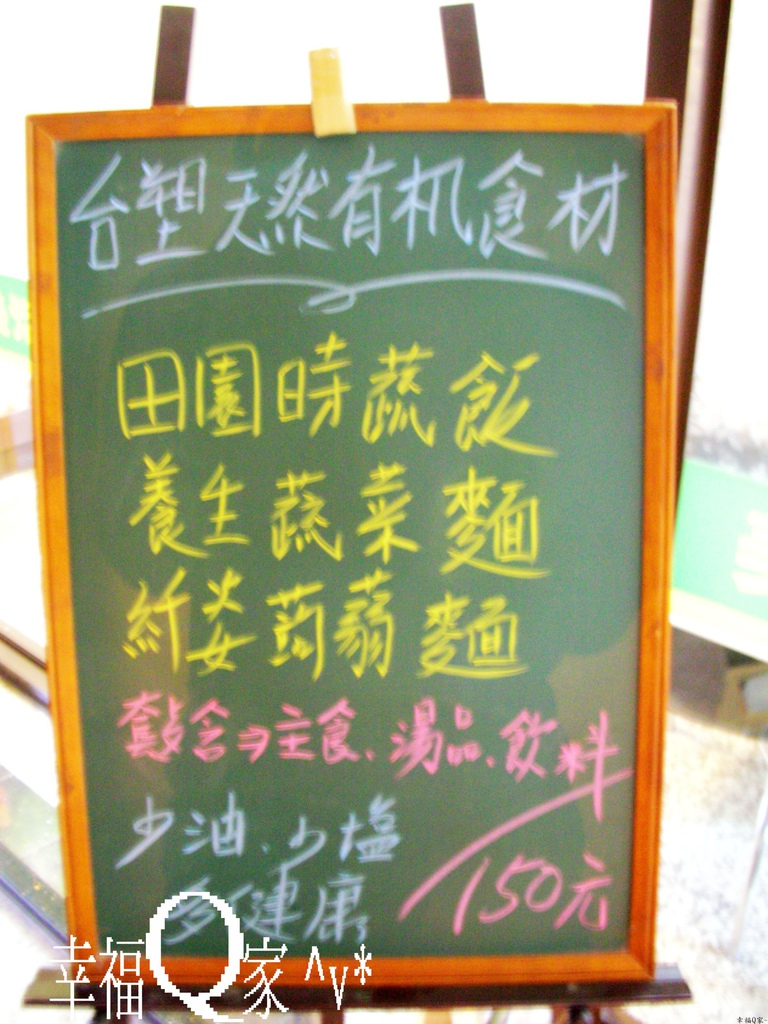 台塑天然有机食材
田園時蔬飯
養生蔬菜麵
纤姿蒟蒻麵
套餐含⇒主食、湯品、飲料
少油、少塩
多健康
150元
幸福Q家 ^v*
幸福Q家